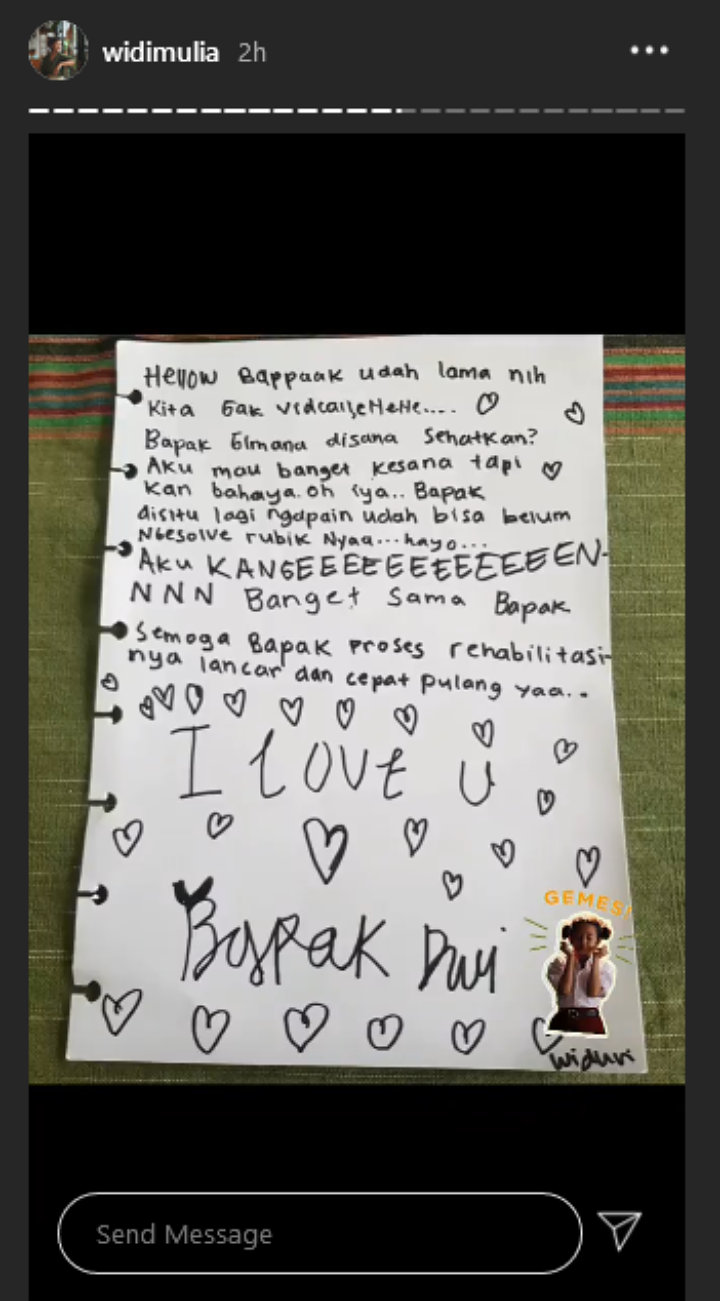 widimulia 2h
Hellow Bappaak udah lama nih
Kita Gak vidcallleHeHe....
Bapak Gimana disana SehatKan?
Aku mau banget kesana tapi
Kan bahaya. oh iya.. Bapak
disitu lagi ngapain udah bisa belum
NGesolve rubik Nyaa...hayo...
Aku KANGEEEEEEEEEEEEEN-
NNN Banget Sama Bapak
Semoga Bapak Proses rehabilitasi-
nya lancar dan cepat Pulang yaa..
I love u
Bapak Dwi
GEMES!
widuri
Send Message